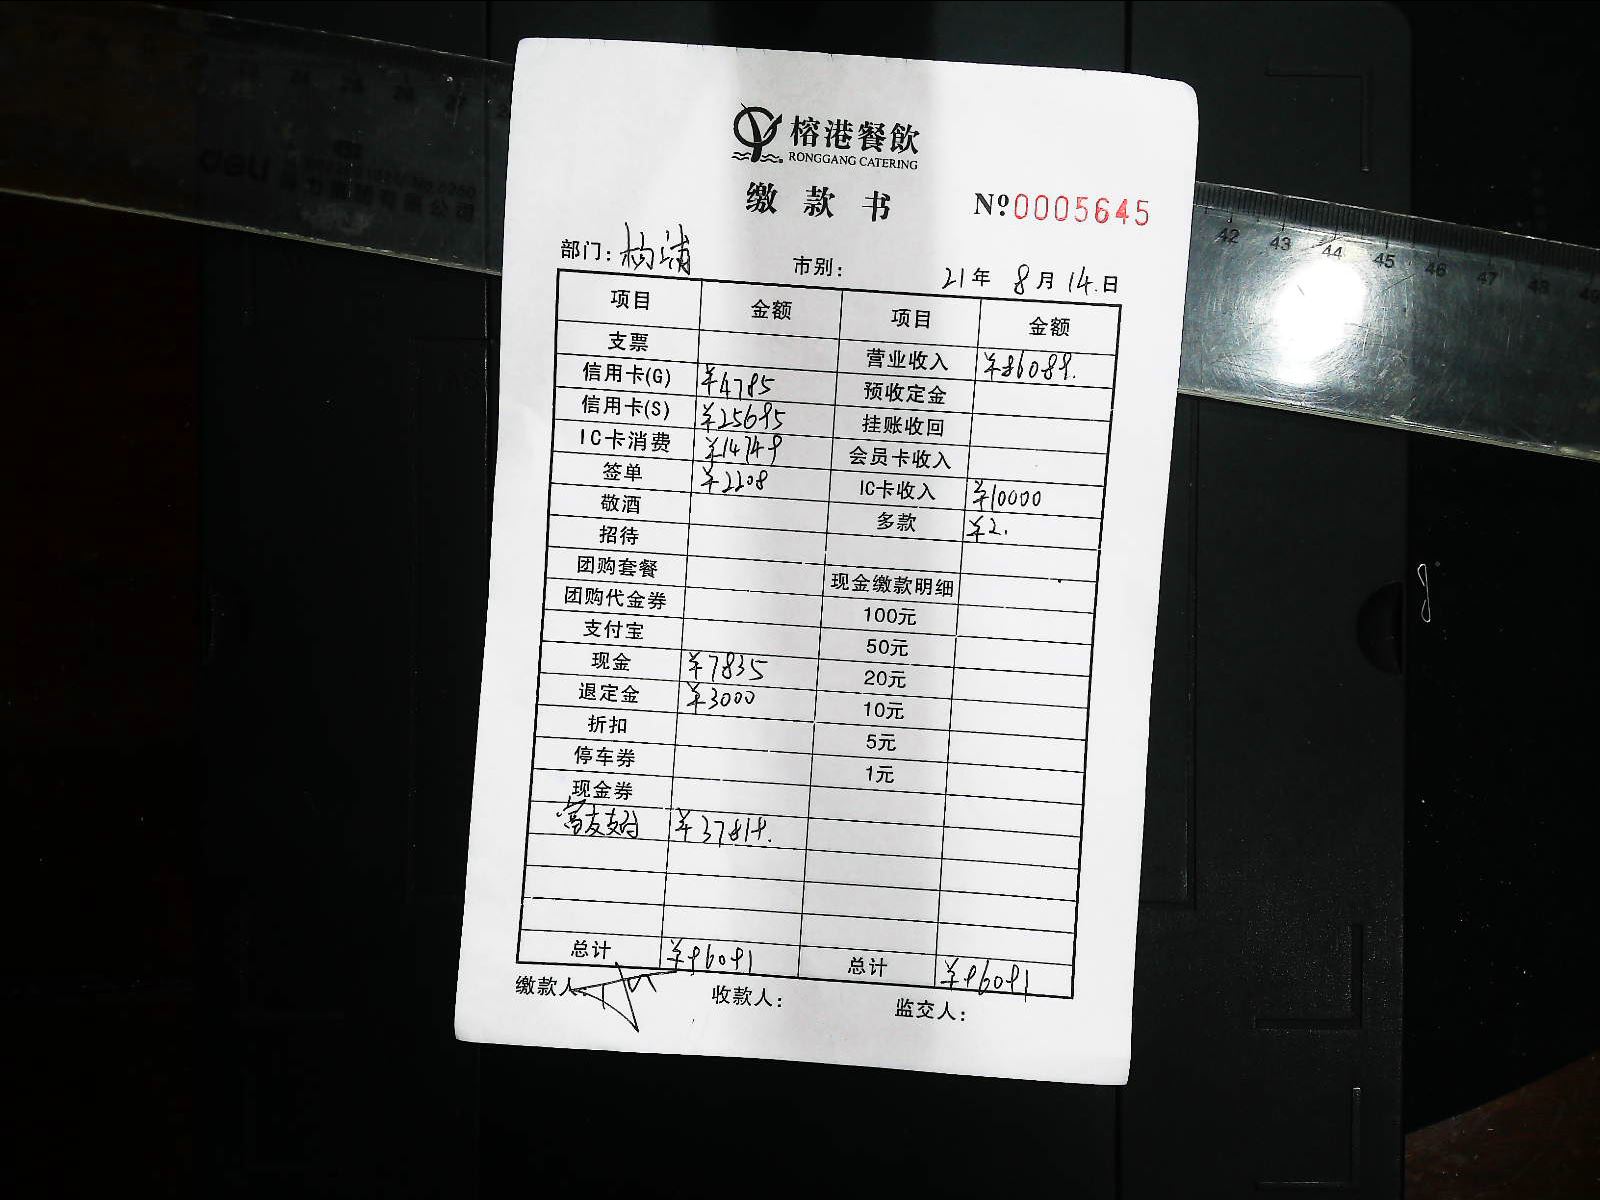 榕港餐飲
RONGGANG CATERING
缴款书 №0005645
部门: 杨浦 市别: 21年 8月 14.日
项目 金额 项目 金额
支票 营业收入 ¥86089.
信用卡(G) ¥4785 预收定金
信用卡(S) ¥25695 挂账收回
IC卡消费 ¥14749 会员卡收入
签单 ¥2208 IC卡收入 ¥10000
敬酒 多款 ¥2.
招待
团购套餐 现金缴款明细
团购代金券 100元
支付宝 50元
现金 ¥7835 20元
退定金 ¥3000 10元
折扣 5元
停车券 1元
现金券
富友支付 ¥37819.
总计 ¥96091 总计 ¥96091
缴款人: 收款人: 监交人:
deli
42 43 44 45 46 47 48 49